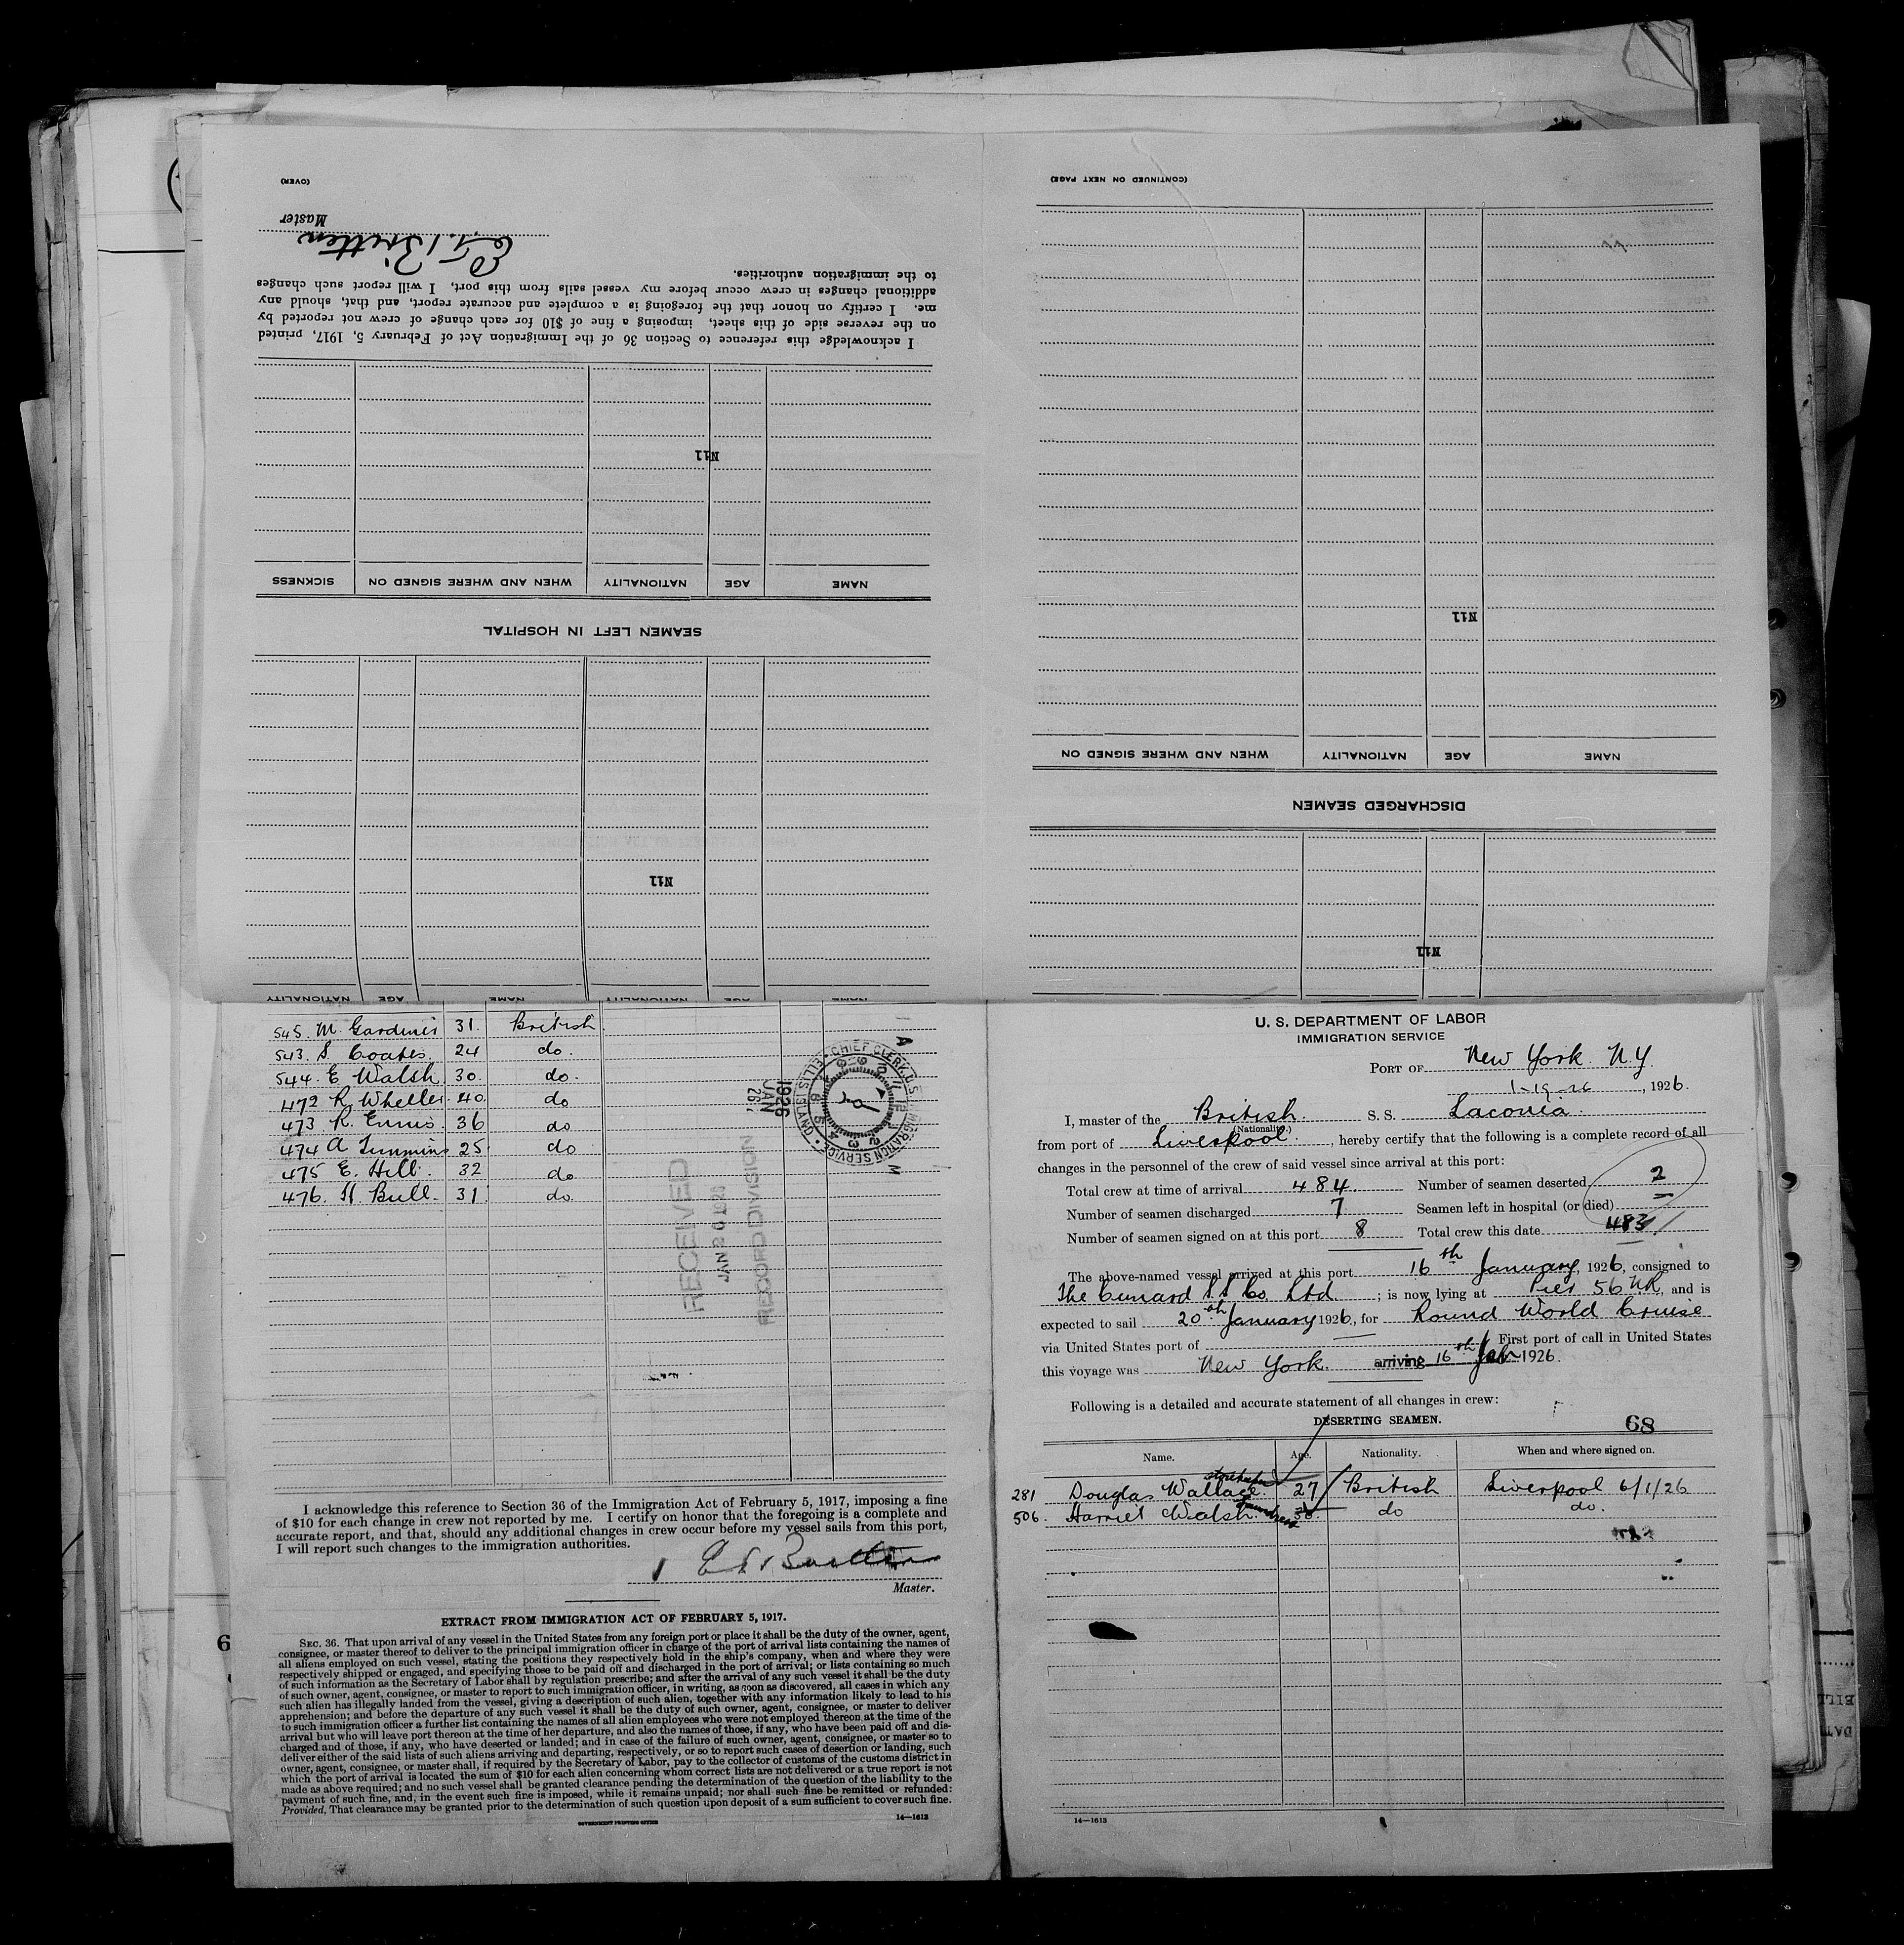 (OVER)
Master
I acknowledge this reference to Section 36 of the Immigration Act of February 5, 1917, printed
on the reverse side of this sheet, imposing a fine of $10 for each change of crew not reported by
me. I certify on honor that the foregoing is a complete and accurate report, and that, should any
additional changes in crew occur before my vessel sails from this port, I will report such changes
to the immigration authorities.
Nil
NAME AGE NATIONALITY WHEN AND WHERE SIGNED ON SICKNESS
SEAMEN LEFT IN HOSPITAL
Nil
NAME AGE NATIONALITY NAME AGE NATIONALITY
(CONTINUED ON NEXT PAGE)
Nil
NAME AGE NATIONALITY WHEN AND WHERE SIGNED ON
DISCHARGED SEAMEN
Nil
545. M. Gardiner 31. British
543. S. Coates. 24 do.
544. E Walsh 30. do.
472 R. Wheller. 40. do
473 R. Ennis. 36 do
474 A Timmins 25 do
475 E. Hill. 32 do
476. H. Bull. 31. do.
CHIEF CLERK, U.S. IMMIGRATION SERVICE • ELLIS ISLAND •
1926
JAN
26
A
M
RECEIVED
JAN 20 1926
RECORD DIVISION
I acknowledge this reference to Section 36 of the Immigration Act of February 5, 1917, imposing a fine
of $10 for each change in crew not reported by me. I certify on honor that the foregoing is a complete and
accurate report, and that, should any additional changes in crew occur before my vessel sails from this port,
I will report such changes to the immigration authorities.
Master.
EXTRACT FROM IMMIGRATION ACT OF FEBRUARY 5, 1917.
SEC. 36. That upon arrival of any vessel in the United States from any foreign port or place it shall be the duty of the owner, agent,
consignee, or master thereof to deliver to the principal immigration officer in charge of the port of arrival lists containing the names of
all aliens employed on such vessel, stating the positions they respectively hold in the ship's company, when and where they were
respectively shipped or engaged, and specifying those to be paid off and discharged in the port of arrival; or lists containing so much
of such information as the Secretary of Labor shall by regulation prescribe; and after the arrival of any such vessel it shall be the duty
of such owner, agent, consignee, or master to report to such immigration officer, in writing, as soon as discovered, all cases in which any
such alien has illegally landed from the vessel, giving a description of such alien, together with any information likely to lead to his
apprehension; and before the departure of any such vessel it shall be the duty of such owner, agent, consignee, or master to deliver
to such immigration officer a further list containing the names of all alien employees who were not employed thereon at the time of the
arrival but who will leave port thereon at the time of her departure, and also the names of those, if any, who have been paid off and dis-
charged and of those, if any, who have deserted or landed; and in case of the failure of such owner, agent, consignee, or master so to
deliver either of the said lists of such aliens arriving and departing, respectively, or so to report such cases of desertion or landing, such
owner, agent, consignee, or master shall, if required by the Secretary of Labor, pay to the collector of customs of the customs district in
which the port of arrival is located the sum of $10 for each alien concerning whom correct lists are not delivered or a true report is not
made as above required; and no such vessel shall be granted clearance pending the determination of the question of the liability to the
payment of such fine, and, in the event such fine is imposed, while it remains unpaid; nor shall such fine be remitted or refunded:
Provided, That clearance may be granted prior to the determination of such question upon deposit of a sum sufficient to cover such fine.
GOVERNMENT PRINTING OFFICE
14—1613
U. S. DEPARTMENT OF LABOR
IMMIGRATION SERVICE
PORT OF New York N.Y.
1-19-26, 1926.
I, master of the British S. S. Laconia
(Nationality.)
from port of Liverpool, hereby certify that the following is a complete record of all
changes in the personnel of the crew of said vessel since arrival at this port:
Total crew at time of arrival 484. Number of seamen deserted 2
Number of seamen discharged 7 Seamen left in hospital (or died) —
Number of seamen signed on at this port 8 Total crew this date 483
The above-named vessel arrived at this port 16th January, 1926, consigned to
The Cunard S.S. Co. Ltd.; is now lying at Pier 56 NR, and is
expected to sail 20th January 1926, for Round World Cruise
via United States port of First port of call in United States
this voyage was New York. arriving 16th 1926.
Following is a detailed and accurate statement of all changes in crew:
DESERTING SEAMEN.
68
Name. Age. Nationality. When and where signed on.
281 Douglas Wallace. 27 British Liverpool 6/1/26
506. Harriet Walsh do do.
14—1613